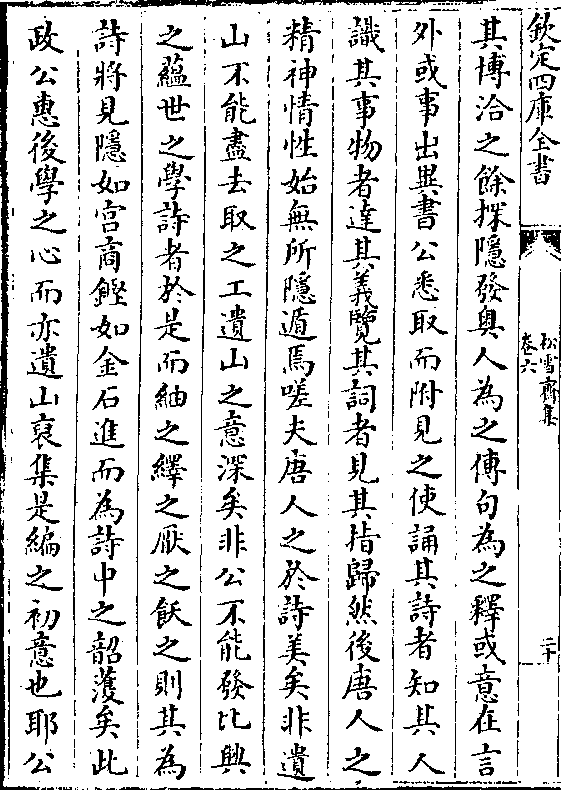 欽定四庫全書
松雪齋集
卷六
二十
其博洽之餘探隱發奧人為之傳句為之釋或意在言
外或事出異書公悉取而附見之使誦其詩者知其人
識其事物者達其義覽其詞者見其指歸然後唐人之
精神情性始無所隱遁焉嗟夫唐人之於詩美矣非遺
山不能盡去取之工遺山之意深矣非公不能發比興
之蘊世之學詩者於是而紬之繹之厭之飫之則其為
詩將見隱如宮商鏗如金石進而為詩中之韶濩矣此
政公惠後學之心而亦遺山裒集是編之初意也耶公